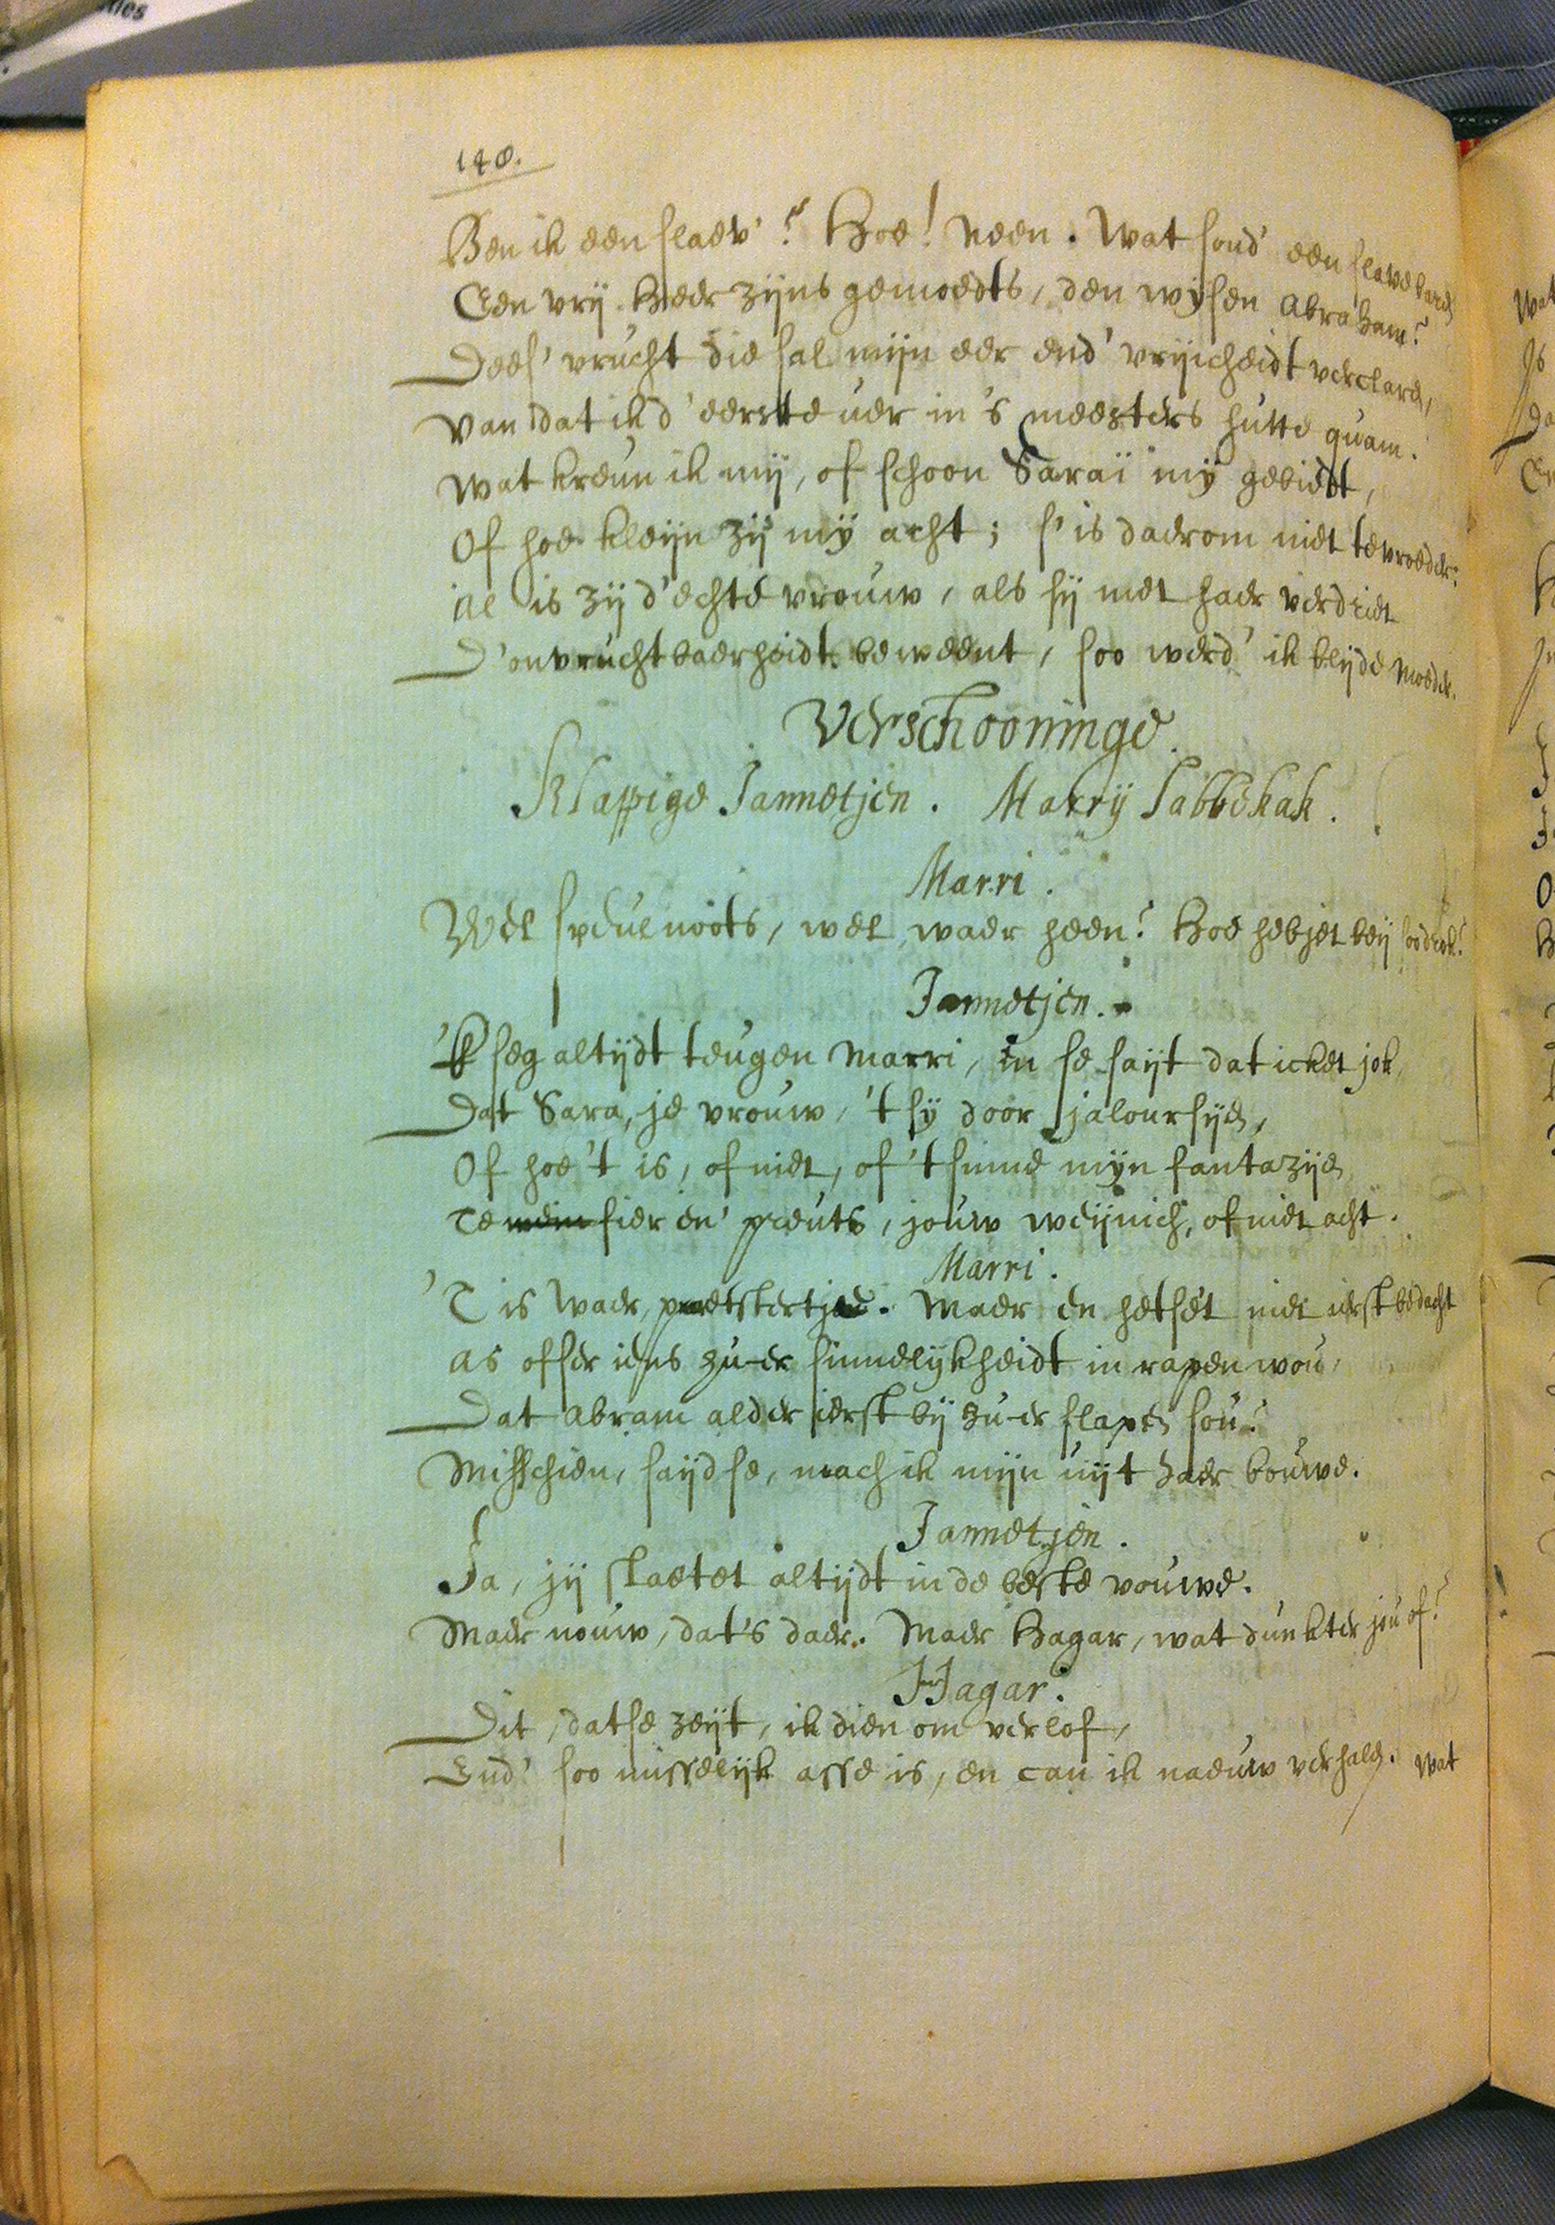 148.
Ben ik een slaev'? Hoe! Neen. Wat soud' een slave baren
Een vrij heer zijns gemoedts, den wijsen Abraham?
Dees' vrucht die sal mijn eer end' vrijicheidt verclaren,
Van dat ik d'eerste uer in 's meesters hutte quam.
Wat kreun ik mij, of schoon Saraï mij gebiedt,
Of hoe kleijn zij mij acht; s' is daerom niet te vroeder:
Al is zij d'echte vrouw, als sij met haer verdriet
D'onvruchtbaerheidt beweent, soo werd' ik blijde moeder.
Verschooninge.
Klappige Jannetjen. Marrij Labbekak.
Marri.
Wel speulnoots, wel waer heen? Hoe hebjet beij soo drok?
Jannetjen.
'k Seg altijdt teugen Marri, in se saijt dat icket jok,
Dat Sara, je vrouw, 't sij door jaloursijen,
Of hoe 't is, of niet, of 't sinne mijn fantazijen
Te fier en' preuts, jouw weijnich, of niet acht.
Marri.
'T is waer, praetstertjen. Maer en hetset niet ierst bedacht
As ofser iens hu-er sinnelijkheidt in rapen wou,
Dat Abram alder ierst bij hu-er slapen sou?
Misschien, saijdse, mach ik mijn uijt haer bouwe.
Jannetjen.
Ja, jij slaetet altijdt in de beste vouwe.
Maer nouw, dat's daer. Maer Hagar, wat dunkter jou of?
Hagar.
Dit, datse zeijt, ik dien om verlof,
End' soo misselijk asse is, en can ik naeuw verhalen. Wat